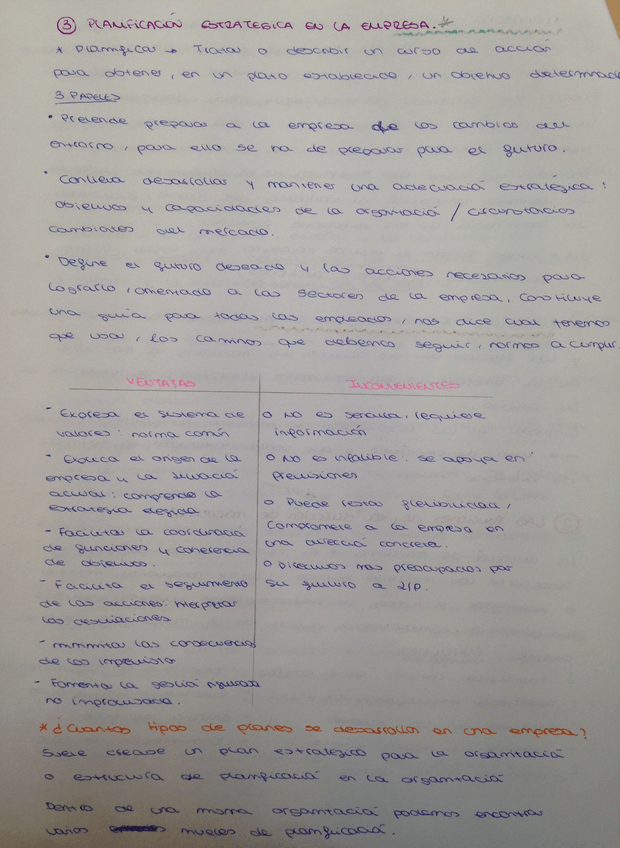 ③ PLANIFICACIÓN ESTRATEGICA EN LA EMPRESA. *
* Planificar → Trazar o describir un curso de acción
para obtener, en un plazo establecido, un objetivo determinado
3 PAPELES
• Pretende preparar a la empresa de los cambios del
entorno, para ello se ha de preparar para el futuro.
• Conlleva desarrollar y mantener una adecuación estratégica:
objetivos y capacidades de la organización / circunstancias
cambiantes del mercado.
• Define el futuro deseado y las acciones necesarias para
lograrlo, orientado a los sectores de la empresa, constituye
una guía para todos los empleados, nos dice cual tenemos
que usar, los caminos que debemos seguir, normas a cumplir.
VENTAJAS
- Expresa el sistema de
valores: norma común
- Explica el origen de la
empresa y la situación
actual: comprende la
estrategia elegida
- Facilita la coordinación
de funciones y coherencia
de objetivos.
- Facilita el seguimiento
de las acciones: interpretar
las desviaciones
- minimiza las consecuencias
de los imprevistos
- Fomenta la gestión rigurosa
no improvisada.
INCONVENIENTES
o No es sencilla, requiere
información
o No es infalible: se apoya en
previsiones
o Puede restar flexibilidad,
compromete a la empresa en
una dirección concreta.
o Directivos mas preocupados por
su futuro a l/p.
* ¿Cuantos tipos de planes se desarrollan en una empresa?
Suele crearse un plan estratégico para la organización
o estructura de planificación en la organización
Dentro de una misma organización podemos encontrar
varios niveles de planificación.